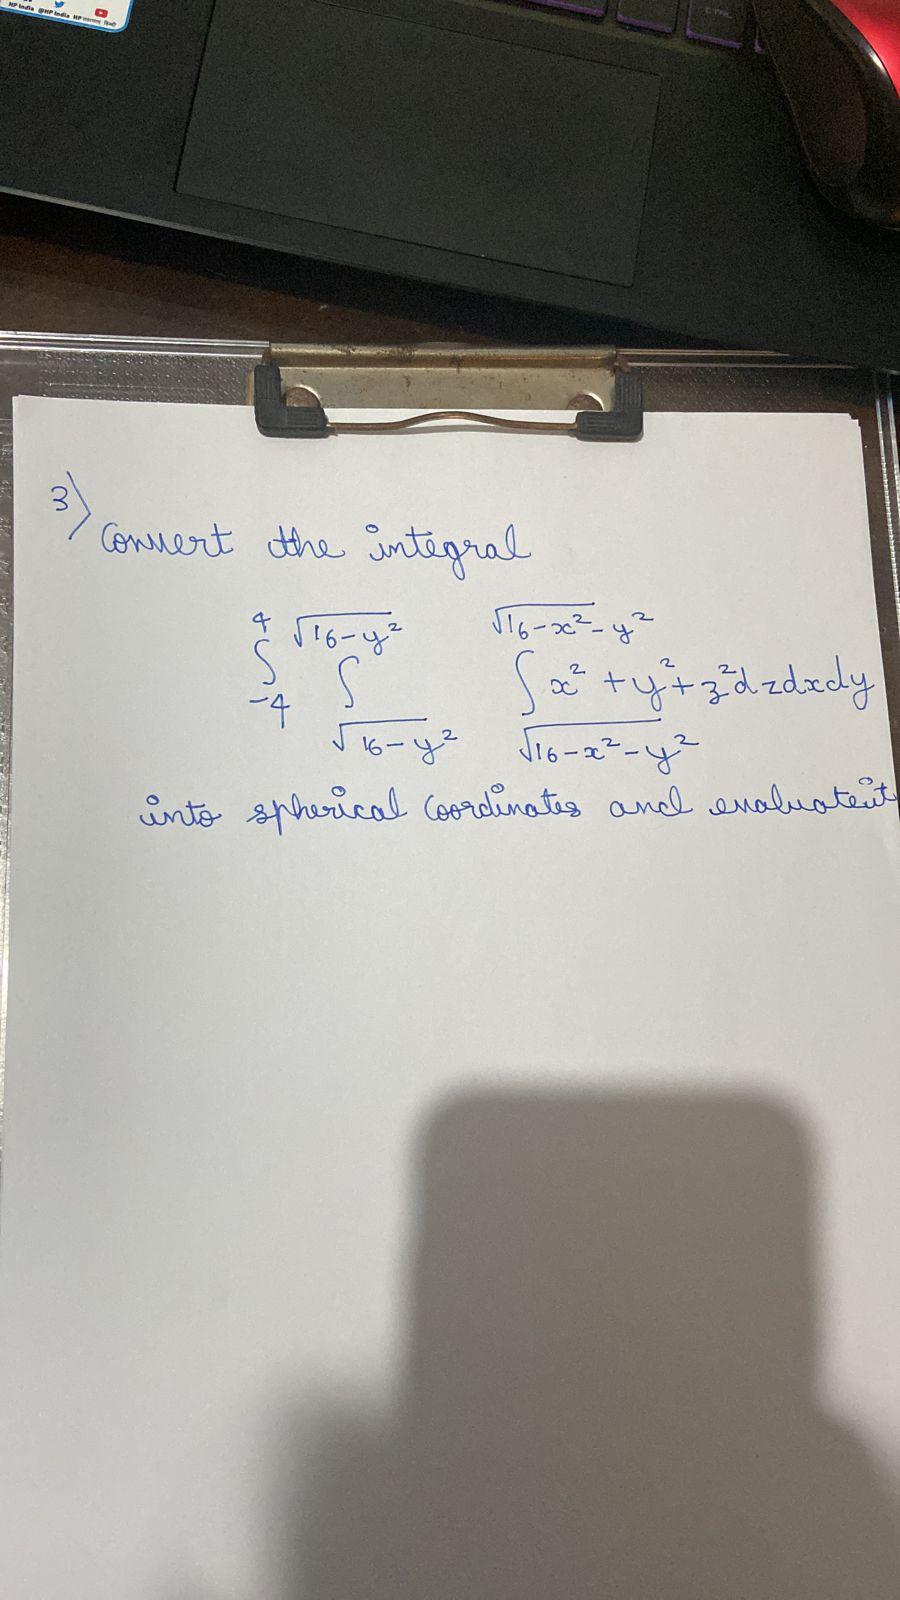 HP India @HP India HP
3)
Convert the integral
∫_{-4}^{4} ∫_{√16-y²}^{√16-y²} ∫_{√16-x²-y²}^{√16-x²-y²} x² + y² + z² dzdxdy
into spherical coordinates and evaluate it
CTRL